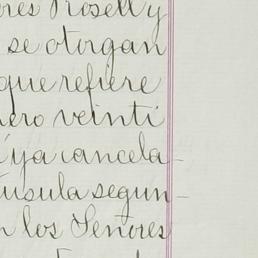 res Rosell y
se otorgan
que refiere
ero veinti
ya cancela-
úsula segun-
n los Señores